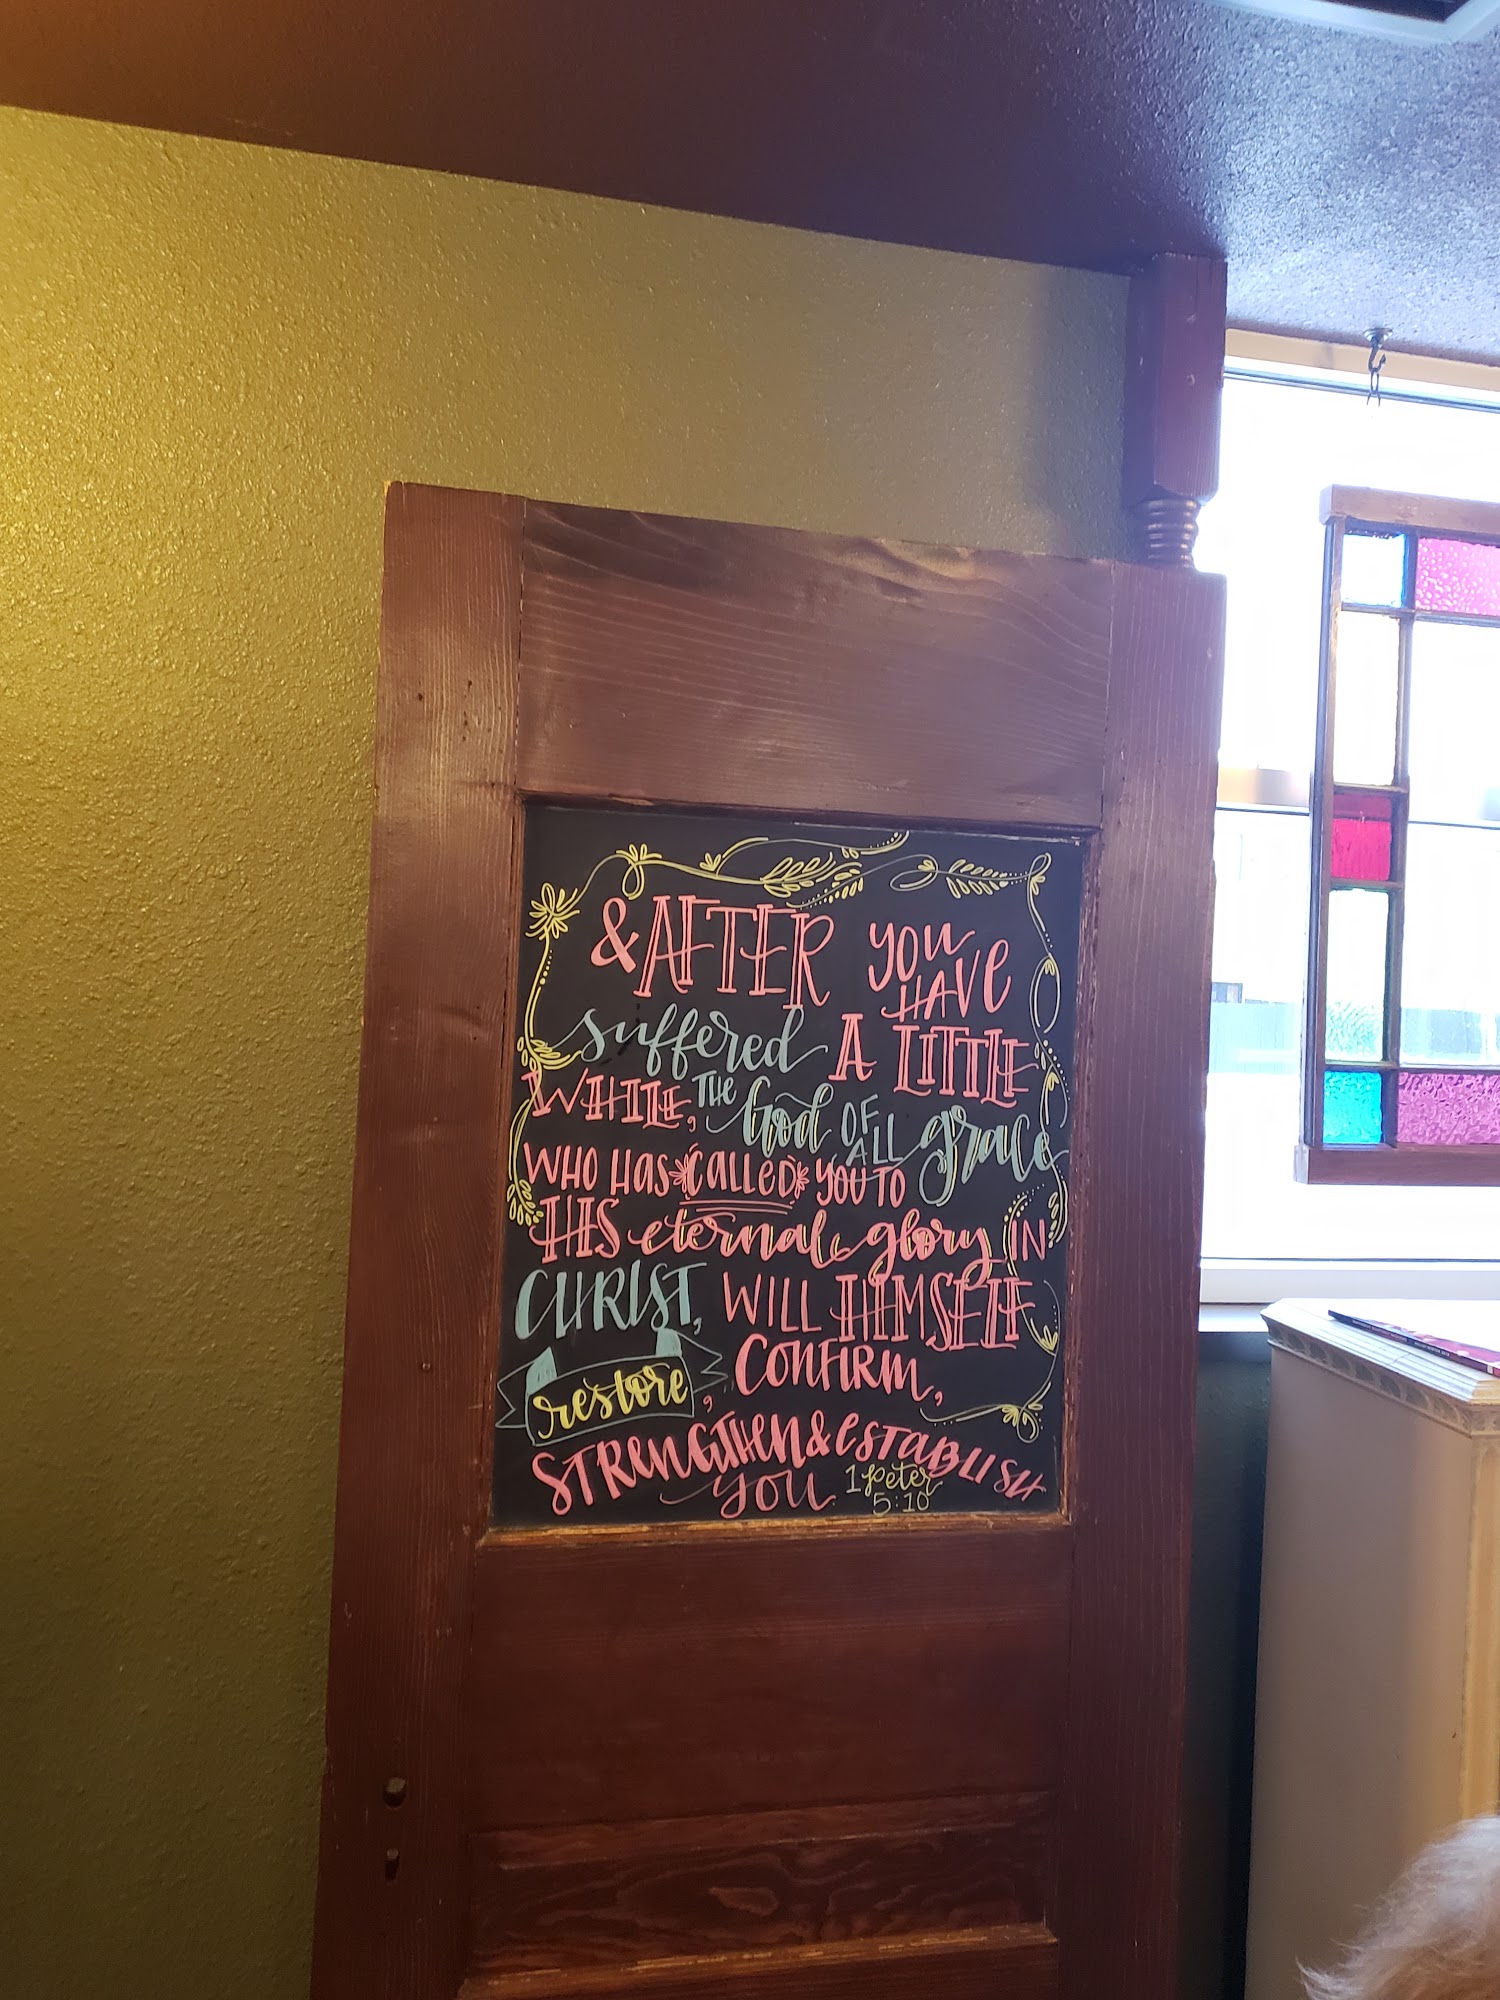 & AFTER you HAVE
suffered A LITTLE
WHILE, THE God OF ALL grace
WHO HAS CALLED YOU TO
HIS eternal glory IN
CHRIST, WILL HIMSELF
restore, CONFIRM,
STRENGTHEN & ESTABLISH
you. 1 Peter
5:10